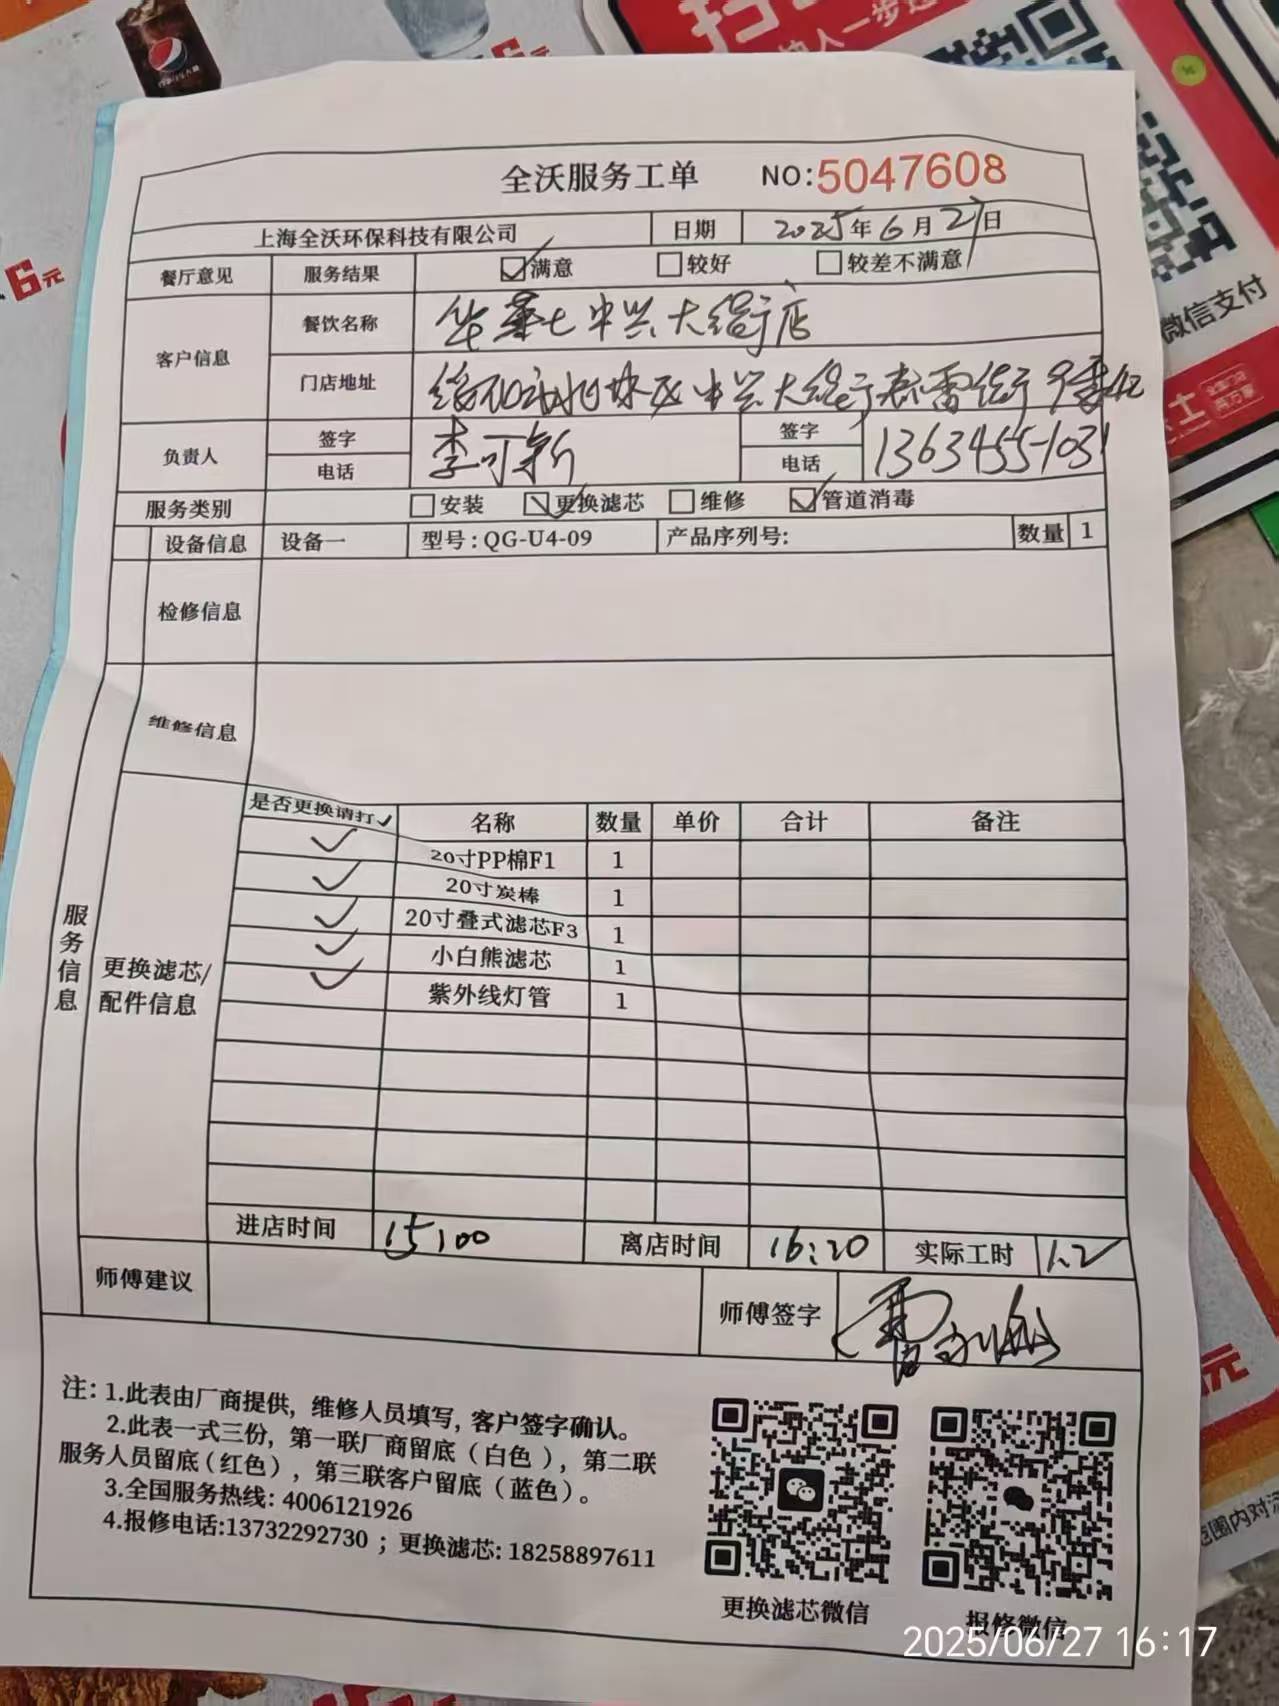 6元
微信支付
全沃服务工单 NO:5047608
上海全沃环保科技有限公司 日期 2025年6月27日
餐厅意见 服务结果 ☑满意 □较好 □较差不满意
客户信息 餐饮名称 华莱士中兴大街店
门店地址 中兴大街
负责人 签字 李可新 签字
电话 电话 13634551031
服务类别 □安装 ☑更换滤芯 □维修 ☑管道消毒
设备信息 设备一 型号:QG-U4-09 产品序列号: 数量 1
检修信息
维修信息
服务信息
更换滤芯/配件信息
是否更换请打✓ 名称 数量 单价 合计 备注
✓ 20寸PP棉F1 1
✓ 20寸炭棒 1
✓ 20寸叠式滤芯F3 1
✓ 小白熊滤芯 1
✓ 紫外线灯管 1
进店时间 15:00 离店时间 16:20 实际工时 1.2
师傅建议 师傅签字
注: 1.此表由厂商提供, 维修人员填写, 客户签字确认。
2.此表一式三份, 第一联厂商留底(白色), 第二联
服务人员留底(红色), 第三联客户留底(蓝色)。
3.全国服务热线: 4006121926
4.报修电话:13732292730 ; 更换滤芯: 18258897611
更换滤芯微信 报修微信
2025/06/27 16:17